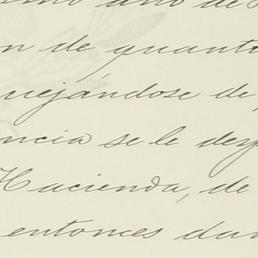 on de quanto
uejándose de
encia se le des
Hacienda, de
entonces dan